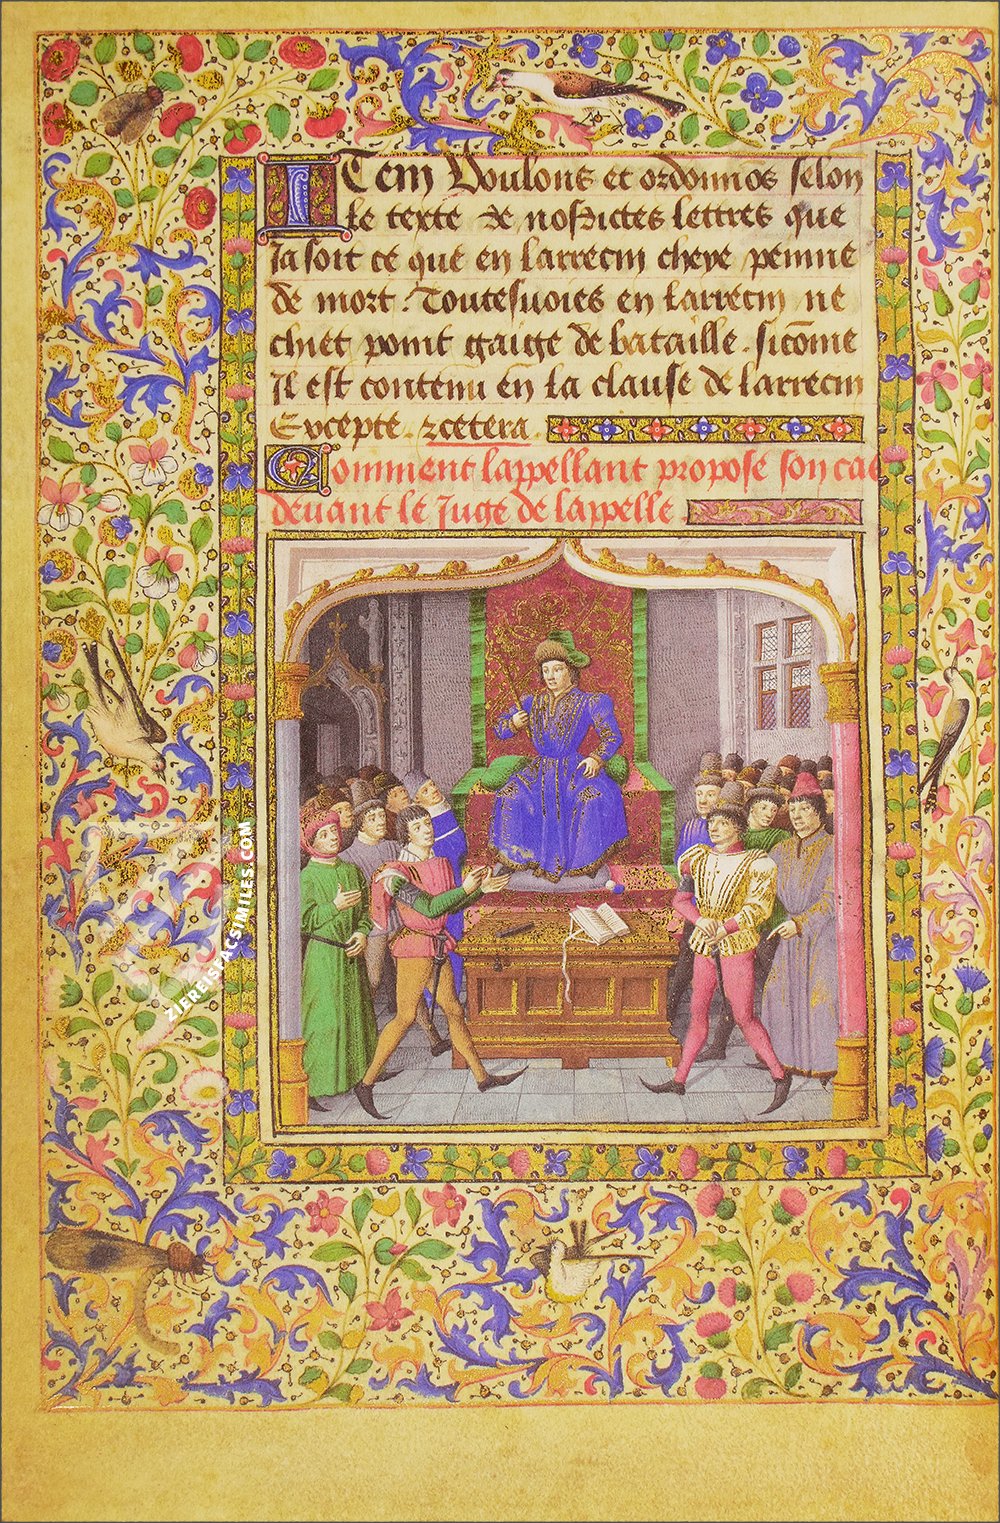 ITem Voulons et ordonnōs selon
le texte de nosdictes lettres que
Ja soit ce que en larrecin cheye peinne
de mort . Toutesuoies en larrecin ne
chiet point gaige de bataille . sicōme
Il est contenu en la clause de larrecin
Excepte . zcetera .
Comment lappellant propose son cas
deuant le Juge de lappelle
ZIEREISFACSIMILES.COM